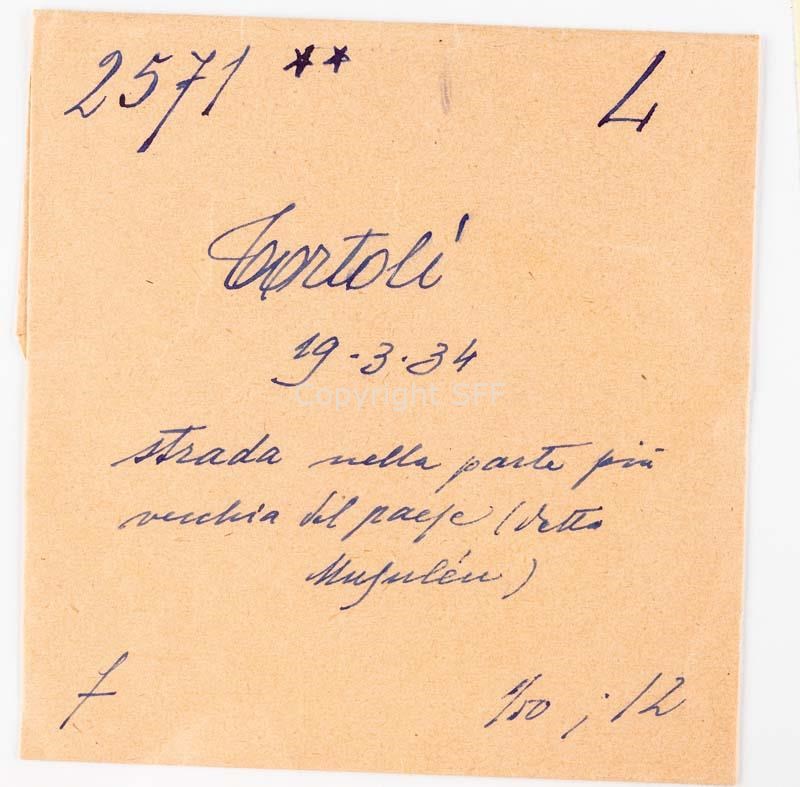 2571 ** L
Tortolí
19-3-34
strada nella parte più
vecchia del paese (detta
)
7 1/50 ; 12
Copyright SFF